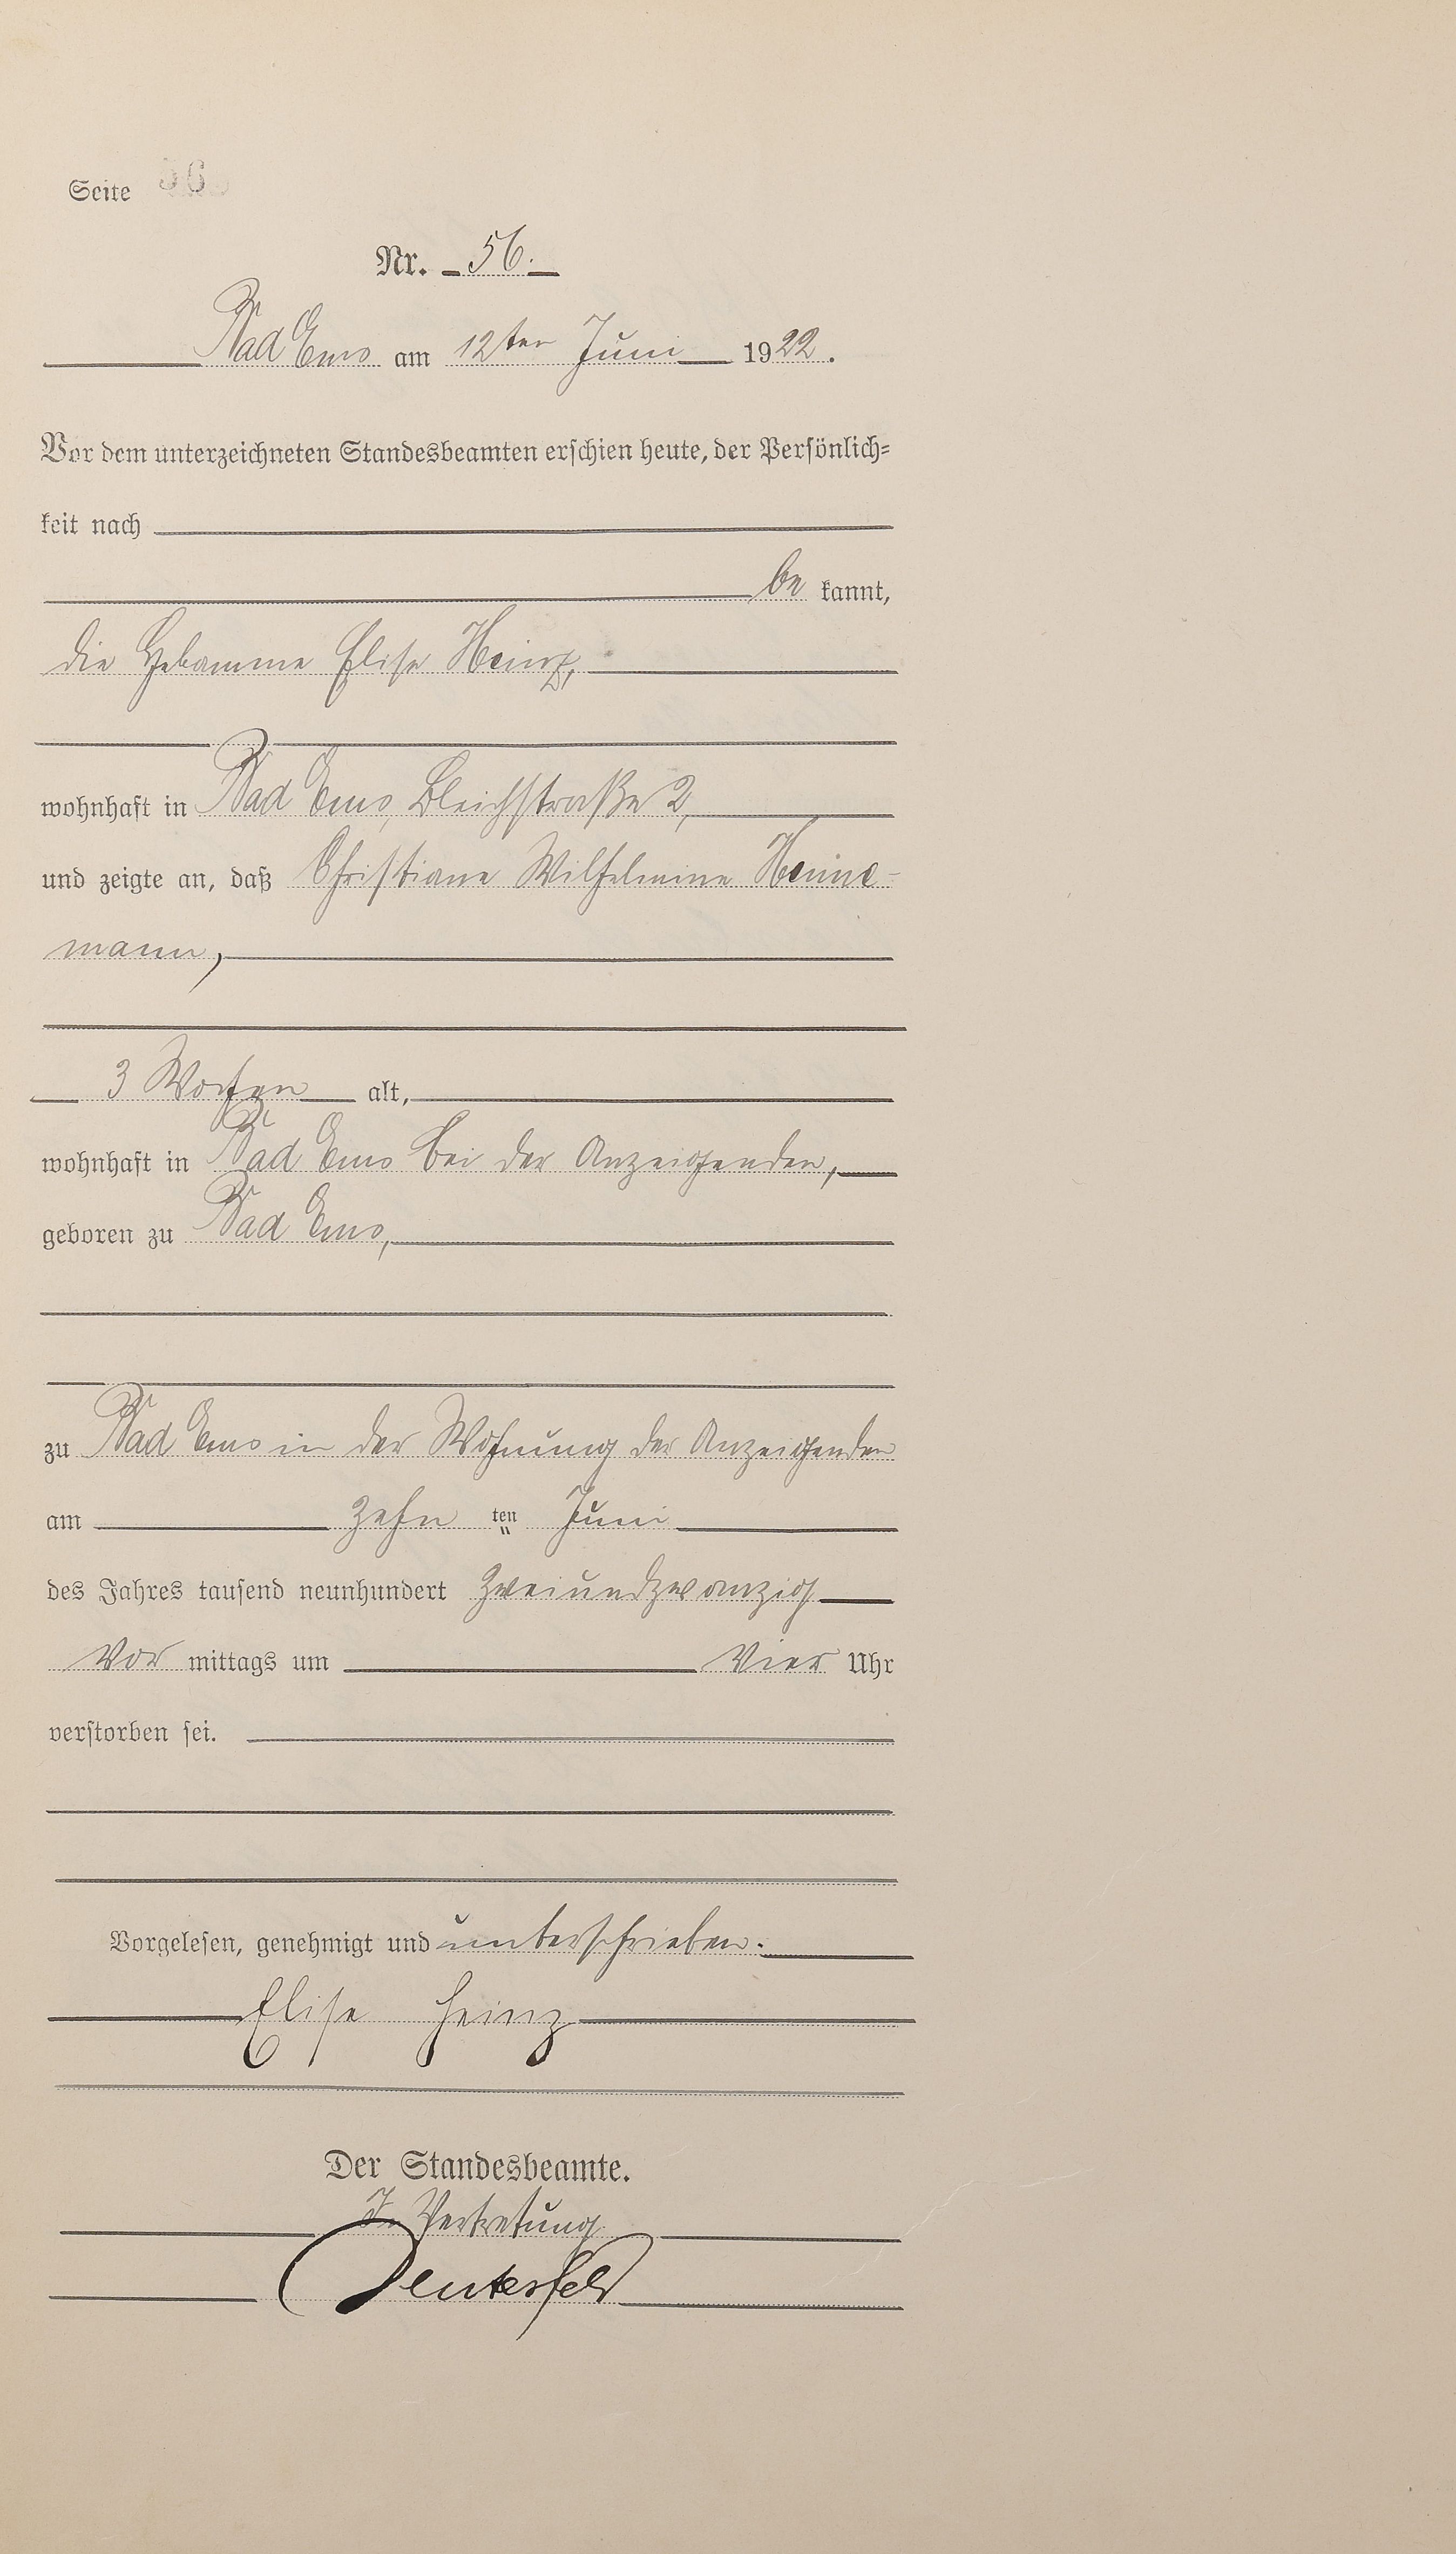 Seite 56
Nr. 56.
Bad Ems am 12ten Juni 1922.
Vor dem unterzeichneten Standesbeamten erschien heute, der Persönlich=
keit nach
be kannt,
die Hebamme Elise Heinz,
wohnhaft in Bad Ems, Bleichstraße 2,
und zeigte an, daß Christiane Wilhelmine Heine-
mann,
3 Wochen alt,
wohnhaft in Bad Ems bei der Anzeigenden,
geboren zu Bad Ems,
zu Bad Ems in der Wohnung der Anzeigenden
am zehn ten Juni
des Jahres tausend neunhundert zweiundzwanzig
Vor mittags um vier Uhr
verstorben sei.
Vorgelesen, genehmigt und unterschrieben.
Elise Heinz
Der Standesbeamte.
In Vertretung